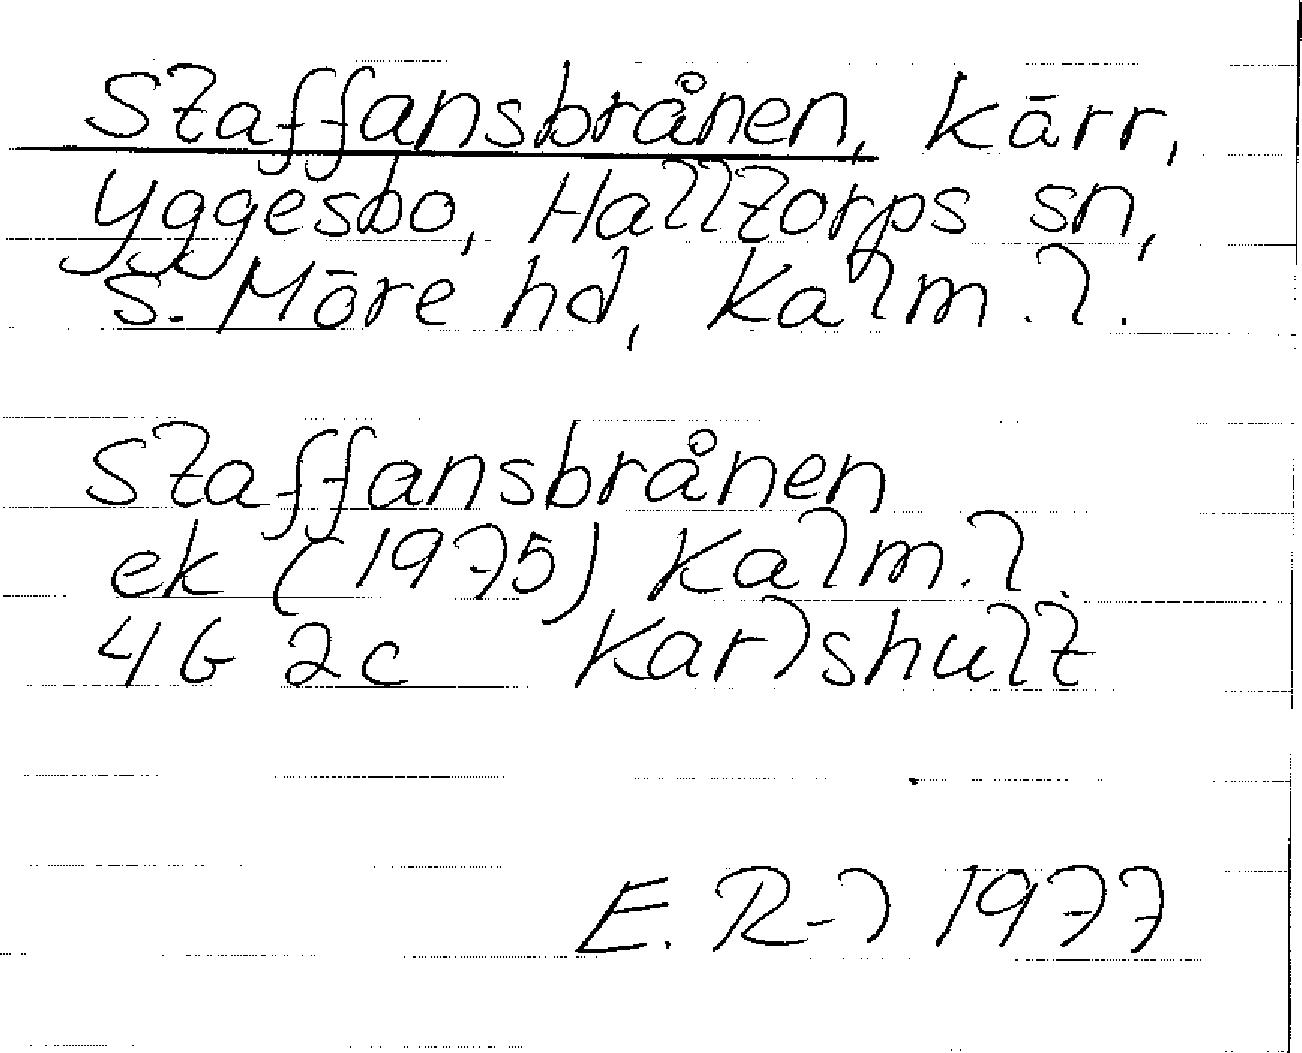 Staffansbrånen, kärr,
Yggesbo, Halltorps sn,
S. Möre hd, Kalm. l.
Staffansbrånen
ek (1975) Kalm. l.
4G 2c Karlshult
E. R-l 1977